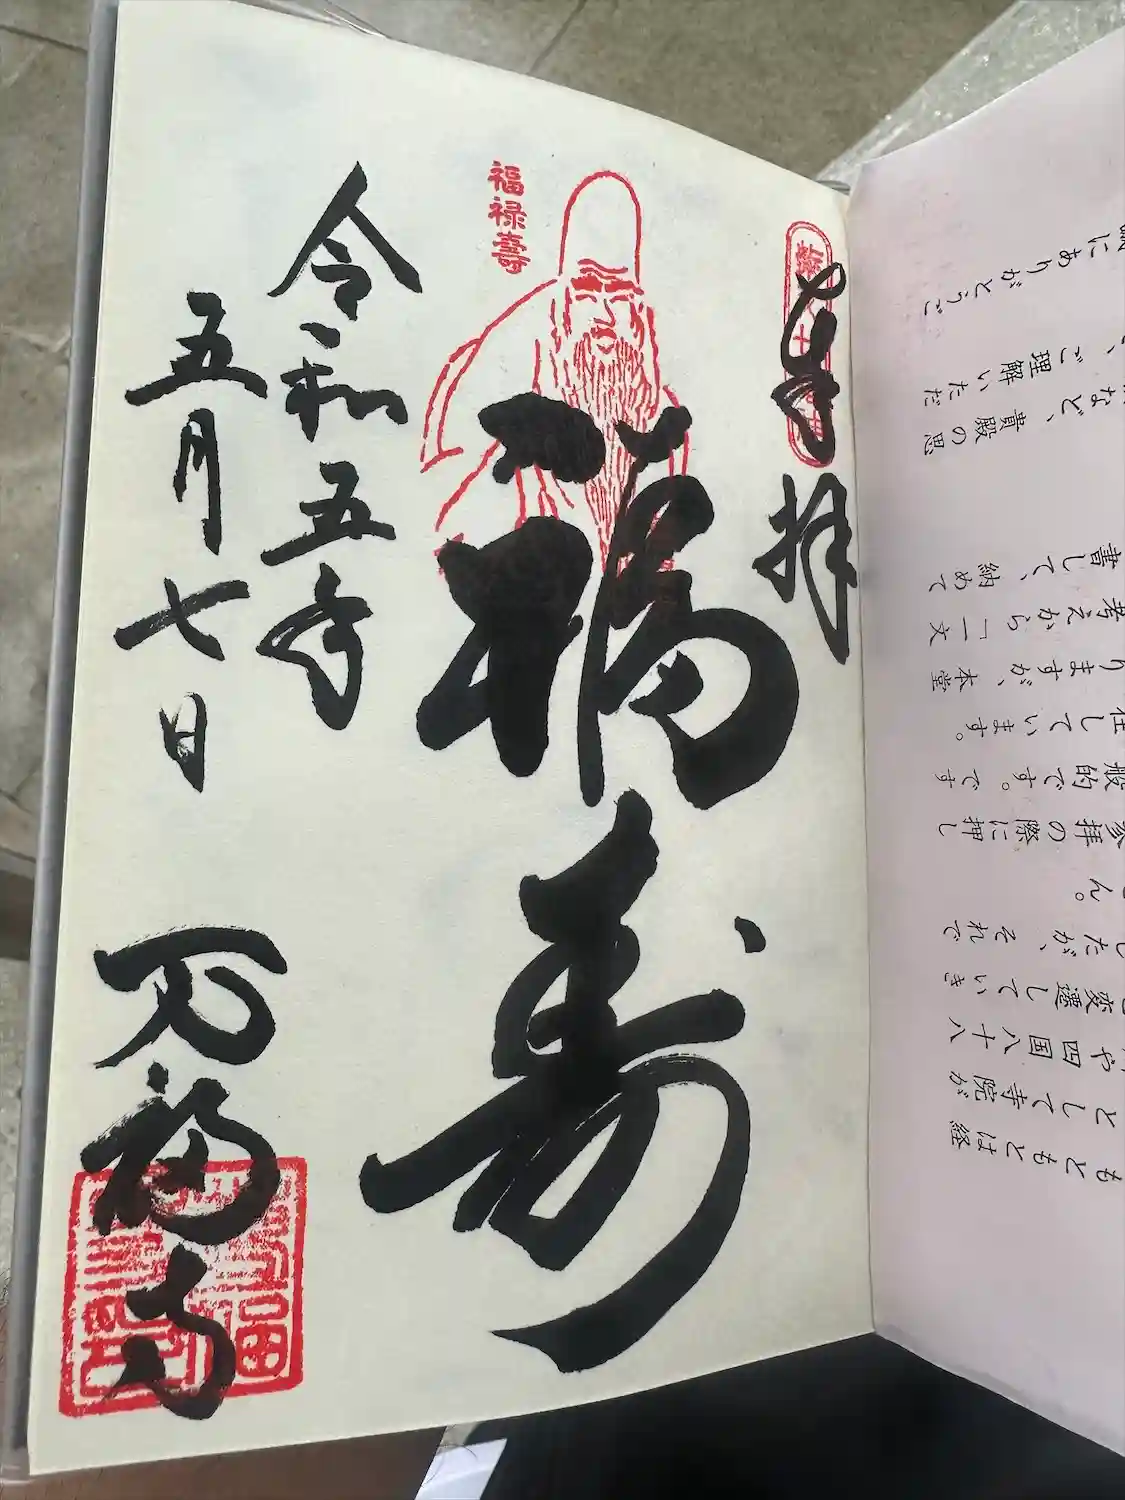 奉拝
福寿
福禄壽
令和五年
五月七日
万福寺
にありがとうご
、ご理解いただ
など、貴殿の思
書して、納めて
考えから「一文
りますが、本堂
在しています。
般的です。です
参拝の際に押し
せん。
したが、それで
変遷していき
や四国八十八
として寺院が
もともとは経